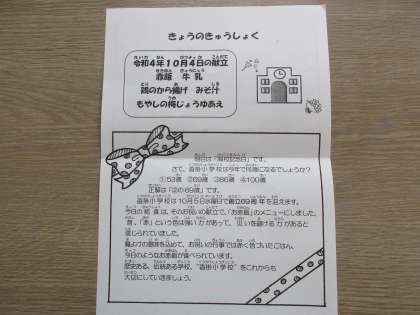 きょうのきゅうしょく
令和4年10月4日の献立
赤飯 牛乳
鶏のから揚げ みそ汁
もやしの梅じょうゆあえ
明日は「開校記念日」です。
さて、道掛小学校は今年で何歳になるでしょうか?
①53歳 ②69歳 ③86歳 ④100歳
正解は「②の69歳」です。
道掛小学校は10月5日水曜日で創立69周年を迎えます。
今日の給食は、そのお祝いの献立で、「お赤飯」のメニューにしました。
昔、「赤」という色は強い力があって、災いを避ける力があると
信じられていました。
魔よけの意味を込めて、お祝いの行事では赤く色づいたごはん、
今日のようなお赤飯が食べられています。
歴史ある、伝統ある学校、"道掛小学校"をこれからも
大切にしていきましょう。